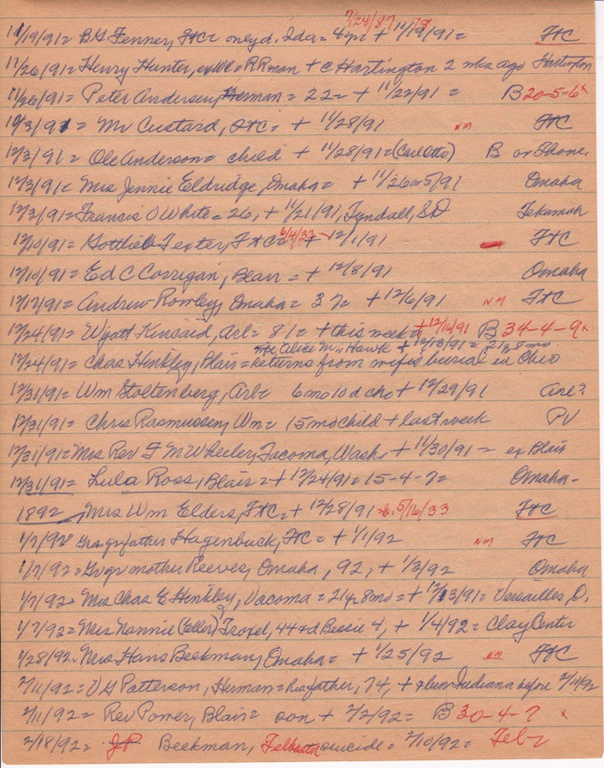 7/24/87 78
11/19/91= B G Fenner, FtC= only d. Ida= 4 yr + 11/19/91= FtC
11/26/91= Henry Hunter, RRman + c Hartington 2 wks ago Hartington
11/26/91= Peter Andersen, Herman= 22= + 11/22/91 = B 20-5-6x
12/3/91= Mr Custard, FtC= + 11/28/91 NM FtC
12/3/91= Ole Anderson= child + 11/28/91= (Carl Otto) B or
12/3/91= Mrs Jennie Eldridge, Omaha= + 11/26 or 5/91 Omaha
12/3/91= Francis O White= 26, + 11/21/91, Tyndall, SD Tekamah
12/10/91= Gottlieb Texter, FtC= 6/4/32 + 12/1/91 FtC
12/10/91= Ed C Corrigan, Blair= + 12/8/91 Omaha
12/17/91= Andrew Rowley, Omaha= 37= + 12/6/91 NM FtC
12/24/91= Wyatt Kincaid, Arl= 81= + this week + 12/16/91 B 34-4-9x
Alice M Hawk + 12/13/91= 21, 8 mo
12/24/91= Chas Hinkley, Blair= Returns from wifes burial in Ohio
12/31/91= Wm Stoltenberg, Arl= 6 mo 10 d ch + 12/29/91 Arl?
12/31/91= Chris Rasmussen, Wn= 15 mo child + last week PV
12/31/91= Mrs Rev F M Wheeler, Tacoma, Wash, + 11/30/91 = ex Blair
12/31/91= Lula Ross, Blair= + 12/24/91= 15-4-7= Omaha-
1892 Mrs Wm Elders, FtC= + 12/28/91 5/16/33 FtC
1/7/92= Hagenbuck, FtC= + 1/1/92 NM FtC
1/7/92= mother Reeves, Omaha, 92, + 1/3/92 Omaha
1/7/92= Mrs Chas E Hinkley, Vacoma= 21, 8 mo= + 12/13/91= Versailles, O.
1/7/92= Mrs Nannie (Eller) Troxel, 44 & d Bessie 4, + 1/4/92= Clay Center
1/28/92= Mrs Hans Beekman, Omaha= + 1/25/92 NM FtC
2/11/92= D G Patterson, Herman= his father, 74, + Indiana before 2/11/92
2/11/92= Rev Power, Blair= son + 2/2/92= B 30-4-7 x
2/18/92= JP Beekman, suicide= 2/10/92=